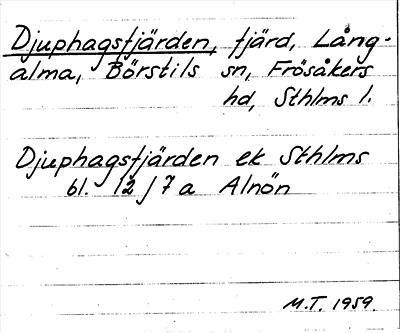 Djuphagsfjärden, fjärd, Lång-
alma, Börstils sn, Frösåkers
hd, Sthlms l.
Djuphagsfjärden ek Sthlms
bl. 12 J 7 a Alnön
M.T. 1959.